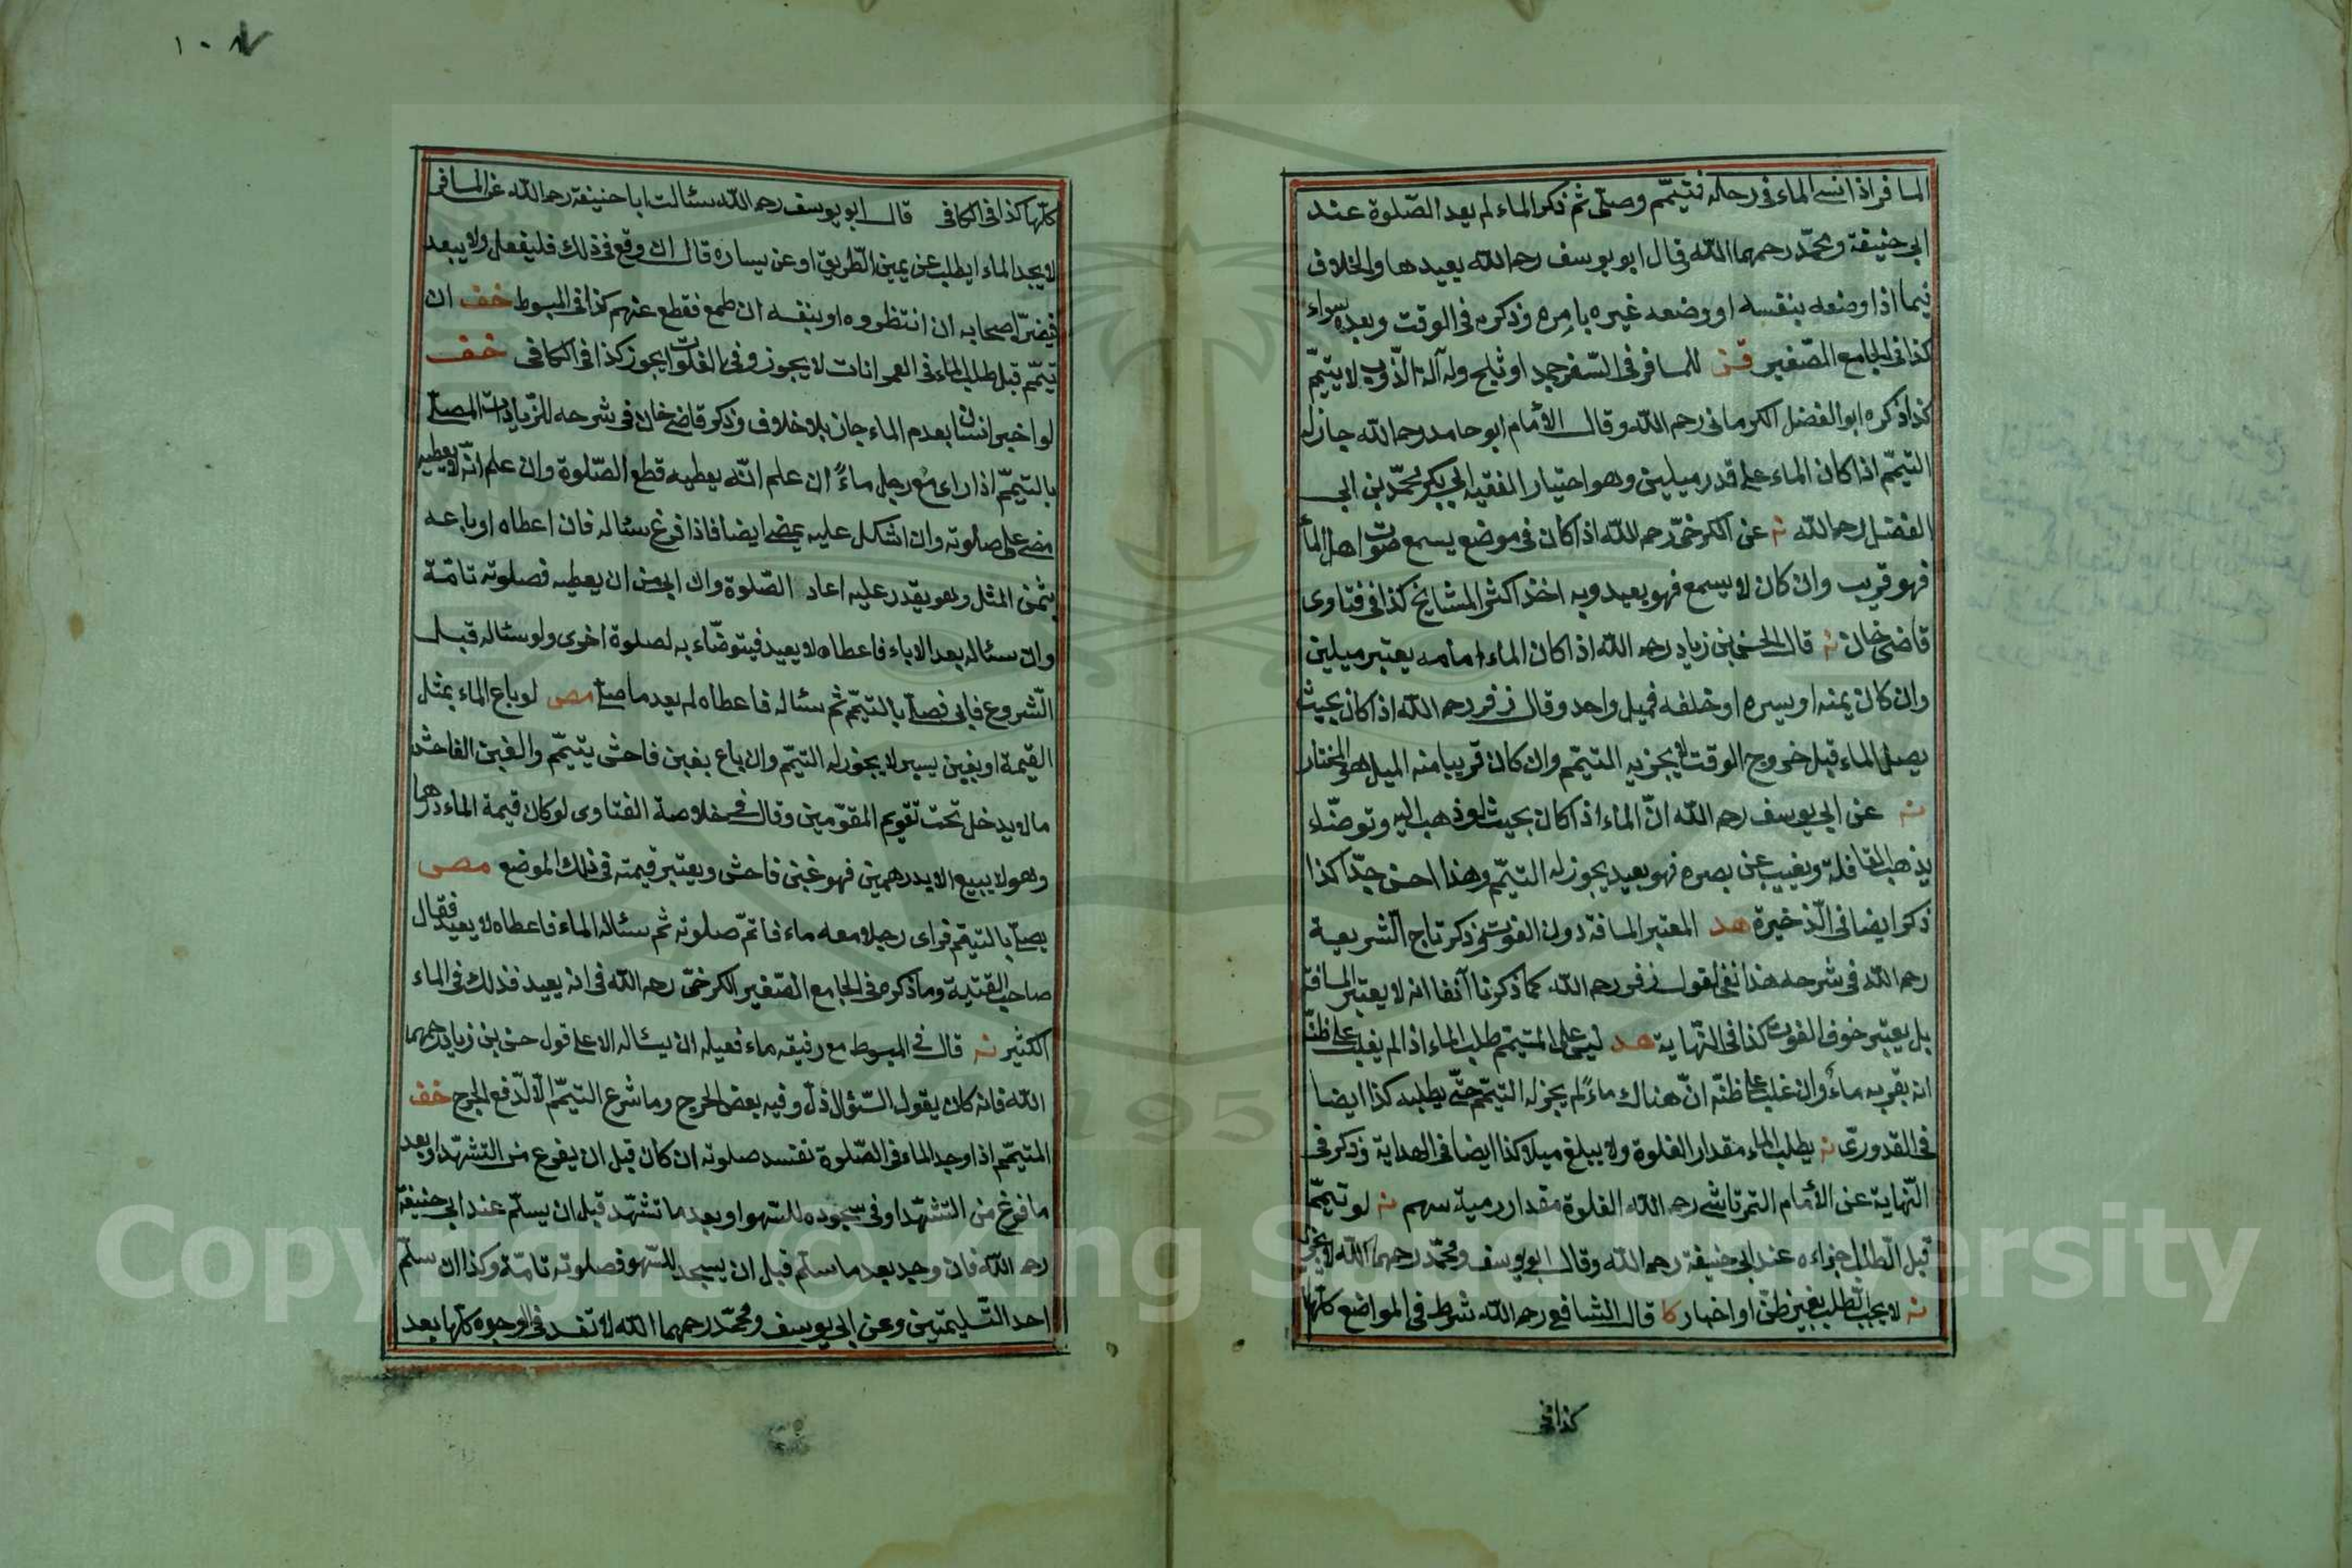 المسافر اذا نسى الماء فى رحاله فتيمّم وصلّى ثم ذكر الماء لم يعد الصّلوة عند
ابى حنيفة ومحمّد رحمهما اللّه وقال ابو يوسف رحه اللّه يعيدها والخلاف
فيما اذا وضعه بنفسه او وضعه غيره بامره وذكره فى الوقت وبعده سواء
كذا فى الجامع الصّغير للمسافر فى السّفر جمد او ثلج وله آلة الذّوب لا يتيمّم
كذا ذكره ابو الفضل الكرمانى رحم اللّه وقال الأمام ابو حامد رحه اللّه جاز له
التيمّم اذا كان الماء على قدر ميلين وهو اختيار الفقيه ابى بكر محمّد بن ابى
الفضل رحه اللّه نه عن الكرخىّ رحه اللّه اذا كان فى موضع يسمع صوت اهل الماء
فهو قريب وان كان لا يسمع فهو بعيد وبه اخذ اكثر المشايخ كذا فى فتاوى
قاضى خان نه قال الحسن بن زياد رحه اللّه اذا كان الماء امامه يعتبر ميلين
وان كان يمنه او يسره او خلفه فميل واحد وقال زفر رحه اللّه اذا كان بحيث
يصل الماء قبل خروج الوقت لا يجزيه التيمّم وان كان قريبا منه الميل هو المختار
نه عن ابى يوسف رحه اللّه انّ الماء اذا كان بحيث لو ذهب اليه وتوضّاء
يذهب القافلة ويغيب عن بصره فهو بعيد يجوز له التيمّم وهذا احسن جدّا كذا
ذكر ايضا فى الذّخيرة هد المعتبر المسافة دون الفوت وذكر تاج الشّريعة
رحه اللّه فى شرحه هذا نفى لقول زفر رحه اللّه كما ذكرنا آنفا انه لا يعتبر المسافة
بل يعتبر خوف الفوت كذا فى النّهاية هد ليس على المتيمّم طلب الماء اذا لم يغلب على ظنّه
انه بقربه ماء وان غلب على ظنّه انّ هناك ماءً لم يجز له التيمّم حتّى يطلبه كذا ايضا
فى القدورىّ نه يطلب الماء مقدار الغلوة ولا يبلغ ميلا كذا ايضا فى الهداية وذكر فى
النّهاية عن الأمام التمرتاشى رحه اللّه الغلوة مقدار رمية سهم نه لو تيمّم
قبل الطّلب اجزاءه عند ابى حنيفة رحه اللّه وقال ابو يوسف ومحمّد رحهما اللّه لا يجزى
نه لا يجب الطّلب بغير ظنّ او اخبار كا قال الشافعى رحه اللّه شرط فى المواضع كلّها
كذا فى
١٠٨
كلّها كذا فى الكافى قال ابو يوسف رحه اللّه سئالت ابا حنيفة رحه اللّه عن المسافر
لا يجد الماء ايطلب عن يمين الطّريق او عن يساره قال ان وقع فى ذلك فليفعل ولا يبعد
فيضرّ اصحابه ان انتظروه او بنفسه ان طمع فقطع عنهم كذا فى المبسوط خف ان
تيمّم قبل طلب الماء فى العمرانات لا يجوز وفى الفلوات يجوز كذا فى الكافى خف
لو اخبر انسان بعدم الماء جاز بلا خلاف وذكر قاضى خان فى شرحه للزّيادات المصلّى
بالتيمّم اذا راى مع رجل ماءً ان علم انّه يعطيه قطع الصّلوة وان علم انّه لا يعطيه
مضى على صلوته وان اشكل عليه يمضى ايضا فاذا فرغ سئاله فان اعطاه او باعه
بثمن المثل وهو يقدر عليه اعاد الصّلوة وان ابى من ان يعطيه فصلوته تامّة
وان سئاله بعد الاباء فاعطاه لا يعيد فيتوضّاء به لصلوة اخرى ولو سئاله قبل
الشّروع فابى فصلّى بالتيمّم ثم سئاله فاعطاه لم يعد ما صلّى مص لو باع الماء بمثل
القيمة او بغبن يسير لا يجوز له التيمّم وان باع بغبن فاحش يتيمّم والغبن الفاحش
ما لا يدخل تحت تقويم المقوّمين وقال فى خلاصة الفتاوى لو كان قيمة الماء درهما
وهو لا يبيع الا بدرهمين فهو غبن فاحش ويعتبر قيمته فى ذلك الموضع مص
يصلّى بالتيمّم فراى رجلا معه ماء فاتمّ صلوته ثم سئاله الماء فاعطاه لا يعيد فقال
صاحب القنية وما ذكره فى الجامع الصّغير الكرخىّ رحه اللّه فى انه يعيد فذلك فى الماء
الكثير نه قال فى المبسوط مع رفيقه ماء فعيله ان يسئاله الا على قول حسن بن زياد رحمهما
اللّه فانه كان يقول السّؤال ذلّ وفيه بعض الحرج وما شرع التيمّم الّا لدفع الحرج خف
المتيمّم اذا وجد الماء فى الصّلوة تفسد صلوته ان كان قبل ان يفرغ من التشهّد او بعد
ما فرغ من التشهّد او فى سجوده للسّهو او بعد ما تشهّد قبل ان يسلّم عند ابى حنيفة
رحه اللّه فان وجد بعد ما سلّم قبل ان يسجد للسّهو فصلوته تامّة وكذا ان سلّم
احد التّسليمتين وعن ابى يوسف ومحمّد رحهما اللّه لا تفسد فى الوجوه كلّها بعد
Copyright © King Saud University